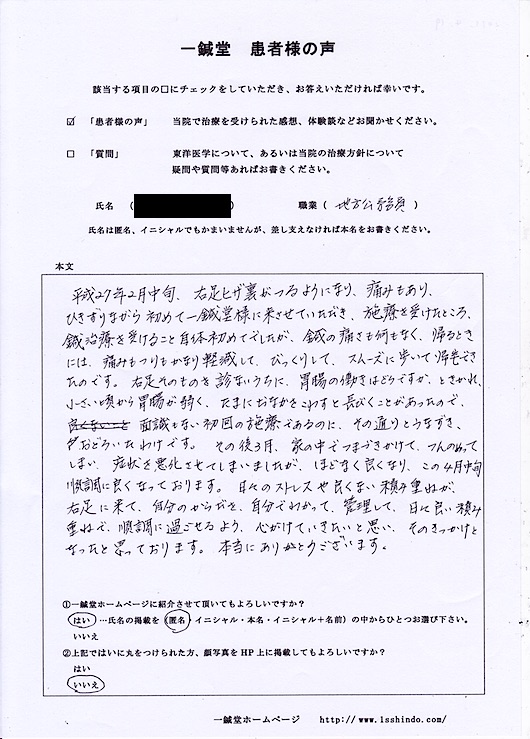 一鍼堂 患者様の声
該当する項目の□にチェックをしていただき、お答えいただければ幸いです。
☑ 「患者様の声」 当院で治療を受けられた感想、体験談などお聞かせください。
□ 「質問」 東洋医学について、あるいは当院の治療方針について
疑問や質問等あればお書きください。
氏名 ( ) 職業 ( 地方公務員 )
氏名は匿名、イニシャルでもかまいませんが、差し支えなければ本名をお書きください。
本文
平成27年2月中旬、右足ヒザ裏がつるようになり、痛みもあり、
ひきずりながら初めて一鍼堂様に来させていただき、施療を受けたところ、
鍼治療を受けること自体初めてでしたが、鍼の痛さも何もなく、帰るとき
には、痛みもつりもかなり軽減して、びっくりして、スムーズに歩いて帰宅でき
たのです。右足そのものを診ないうちに、胃腸の働きはどうですか、ときかれ、
小さい頃から胃腸が弱く、たまにおなかをこわすと長びくことがあったので、
面識もない初回の施療であるのに、その通りとうなずき、
おどろいたわけです。その後3月、家の中でつまづきかけて、つんのめって
しまい、症状を悪化させてしまいましたが、ほどなく良くなり、この4月中旬
順調に良くなっております。日々のストレスや良くない積み重ねが、
右足に来て、自分のからだを、自分でわかって、管理して、日々良い積み
重ねで、順調に過ごせるよう、心がけていきたいと思い、そのきっかけと
なったと思っております。本当にありがとうございます。
①一鍼堂ホームページに紹介させて頂いてもよろしいですか？
はい …氏名の掲載を（匿名・イニシャル・本名・イニシャル＋名前）の中からひとつお選び下さい。
いいえ
②上記ではいに丸をつけられた方、顔写真をHP上に掲載してもよろしいですか？
はい
いいえ
一鍼堂ホームページ http://www.1sshindo.com/